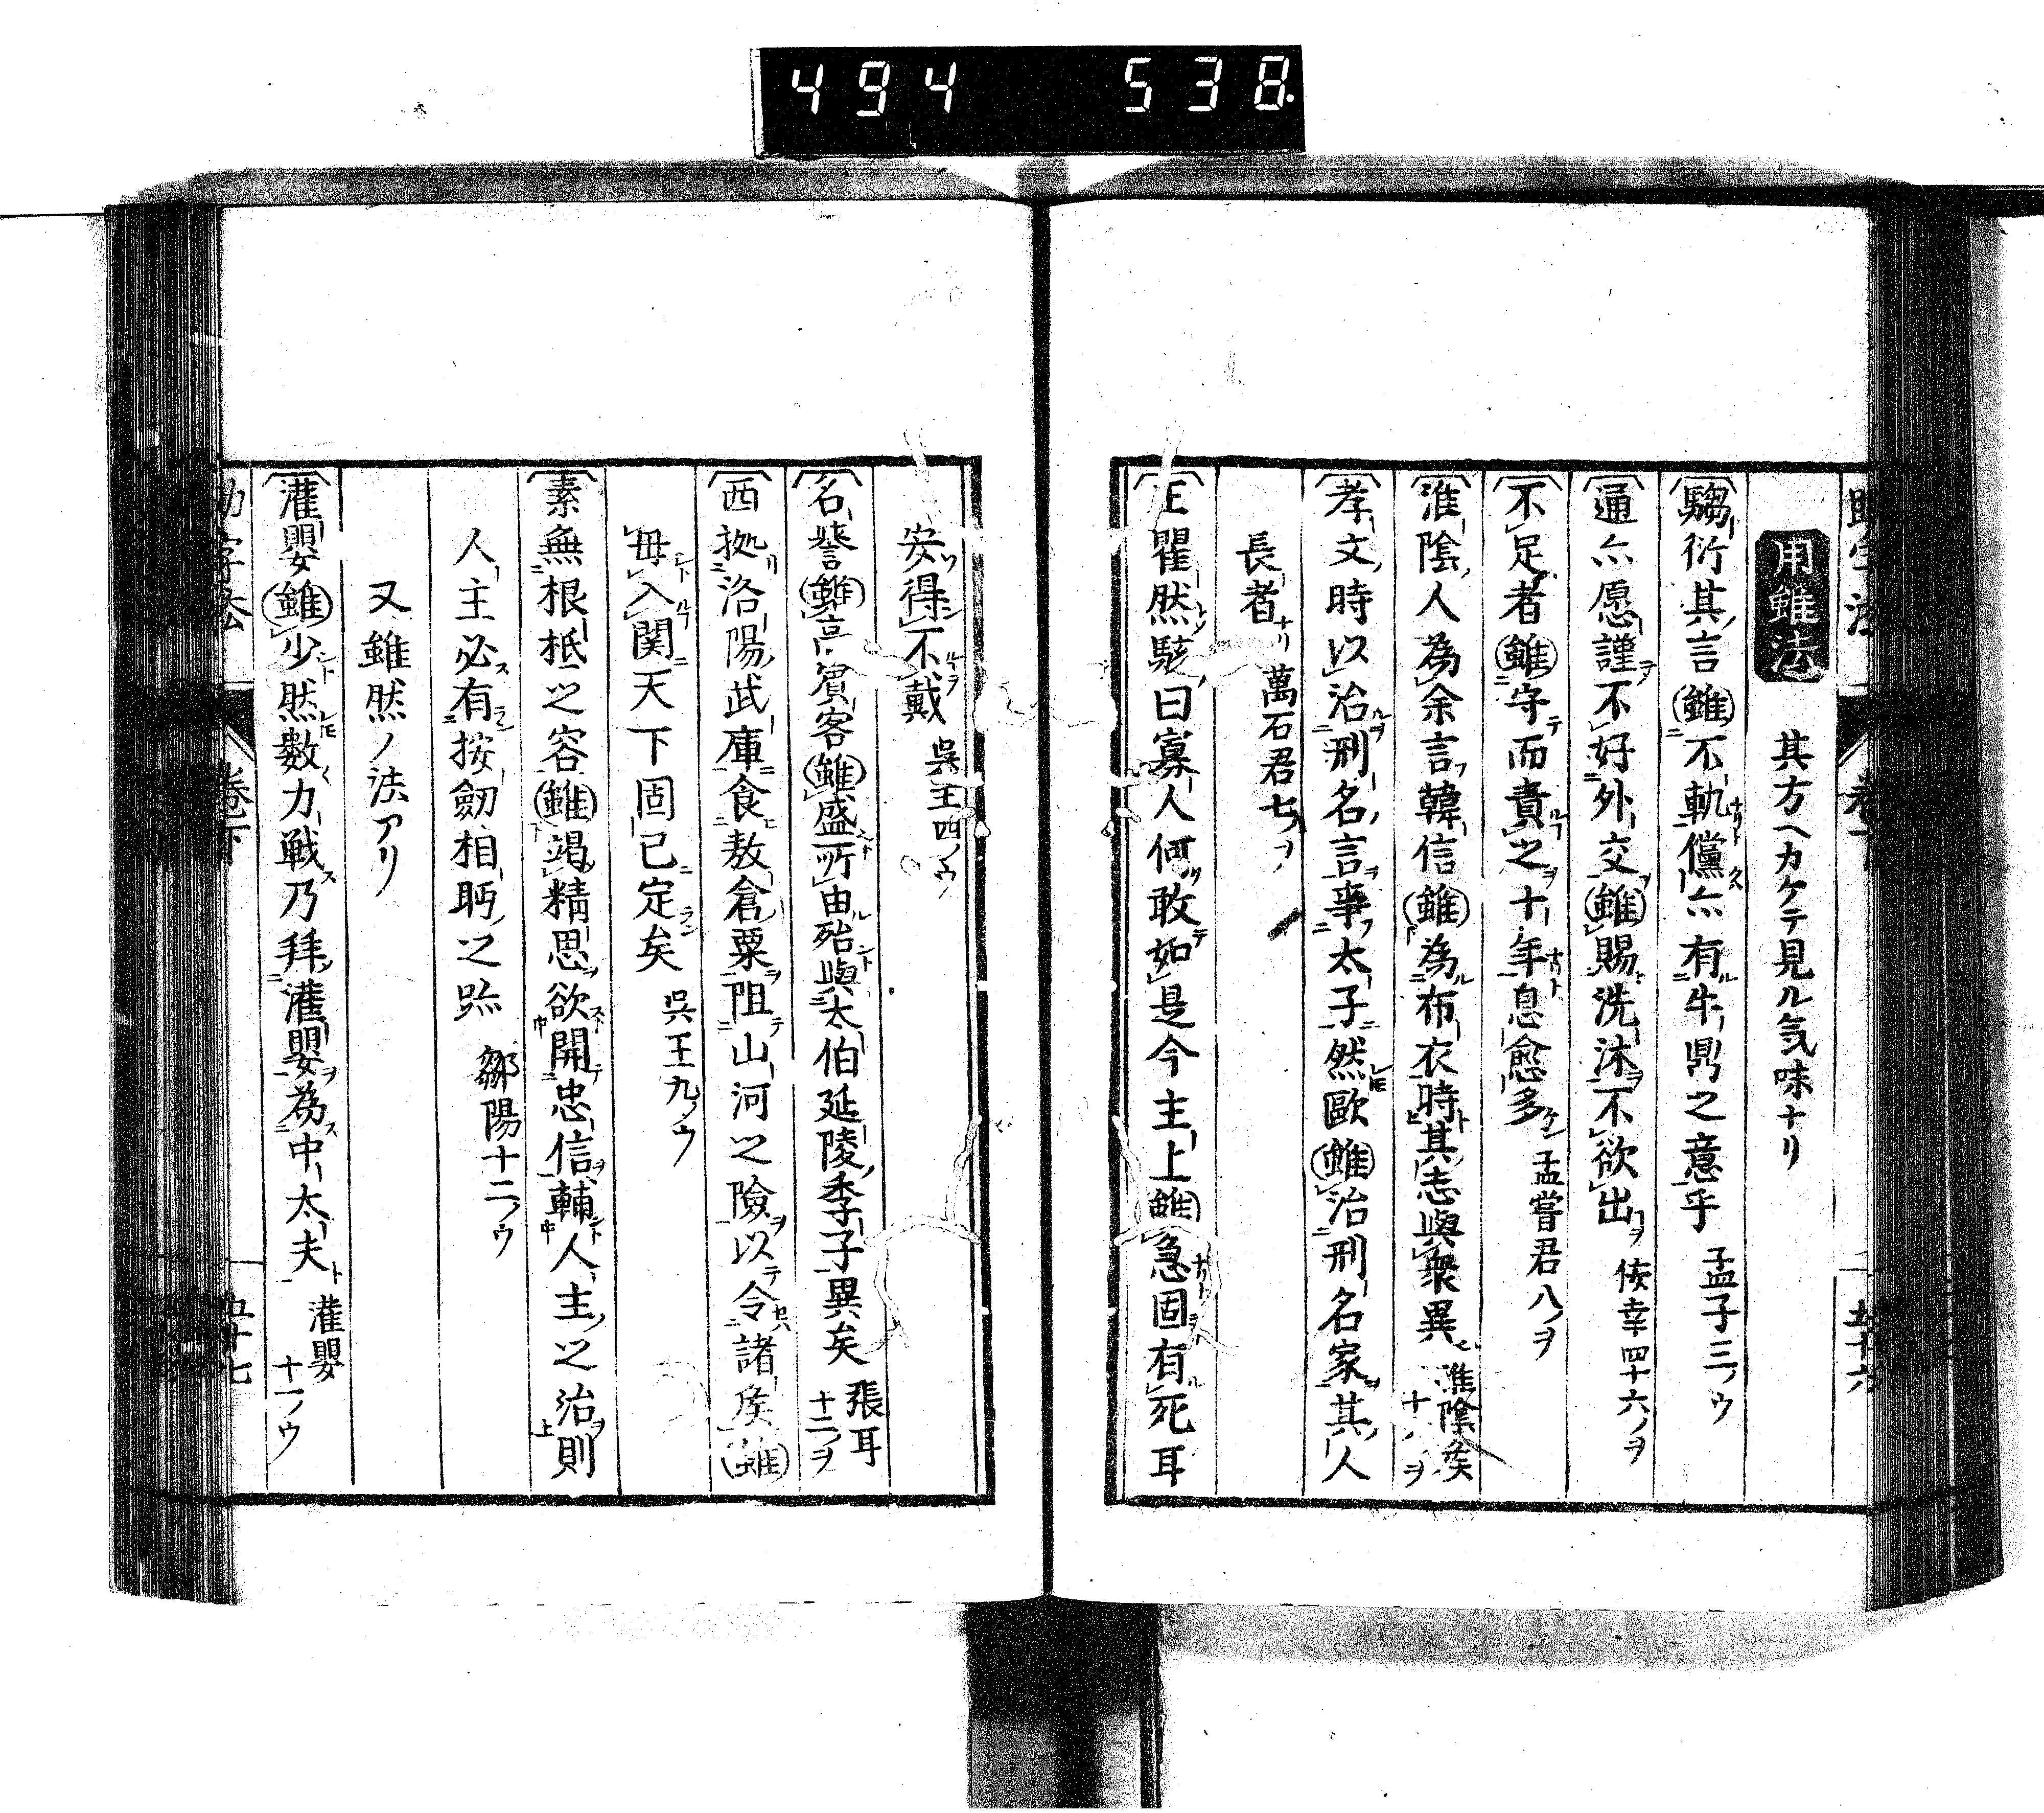 494 538
用雖法 其方ヘカケテ見ル気味ナリ
騶衍其言雖不軌儻亦有牛鼎之意乎 孟子三ノウ
通亦愿謹不好外交雖賜洗沐不欲出 佞幸四十六ノヲ
不足者雖守而責之十年息愈多 孟嘗君八ノヲ
淮陰人為余言韓信雖為布衣時其志與衆異 淮陰矦十ノヲ
孝文時以治刑名言事太子然歐雖治刑名家其人
長者 萬石君七ノヲ
王瞿然駭曰寡人何敢如是今主上雖急固有死耳
安得不戴 呉王四ノウ
名譽雖高賓客雖盛所由殆與太伯延陵季子異矣 張耳十二ノヲ
西拠洛陽武庫食敖倉粟阻山河之險以令諸矦雖
毋入関天下固已定矣 呉王九ノウ
素無根柢之容雖竭精思欲開忠信輔人主之治則
人主必有按劒相眄之跡 鄒陽十二ノウ
又雖然ノ法アリ
灌嬰雖少然數力戰乃拜灌嬰為中太夫 灌嬰十一ノウ
卷下
五十七